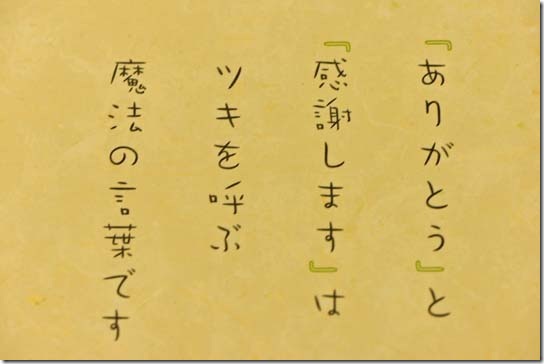 『ありがとう』と
『感謝します』は
ツキを呼ぶ
魔法の言葉です